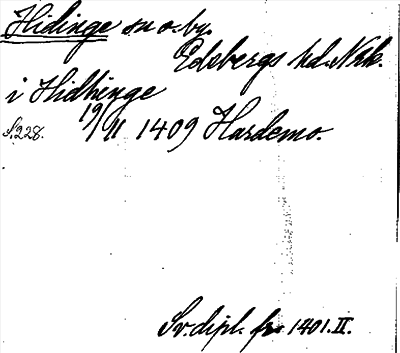 Hidinge sn o. by.
Edsbergs hd. Nrk.
i Hidhinge
19/11 1409 Hardemo.
S. 228.
Sv. dipl. fr 1401. II.